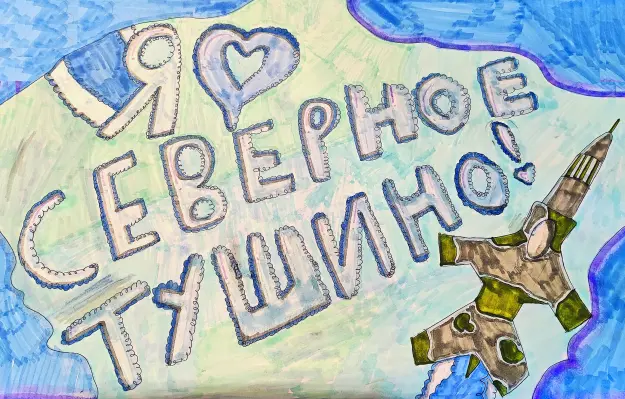 Я
СЕВЕРНОЕ
ТУШИНО!